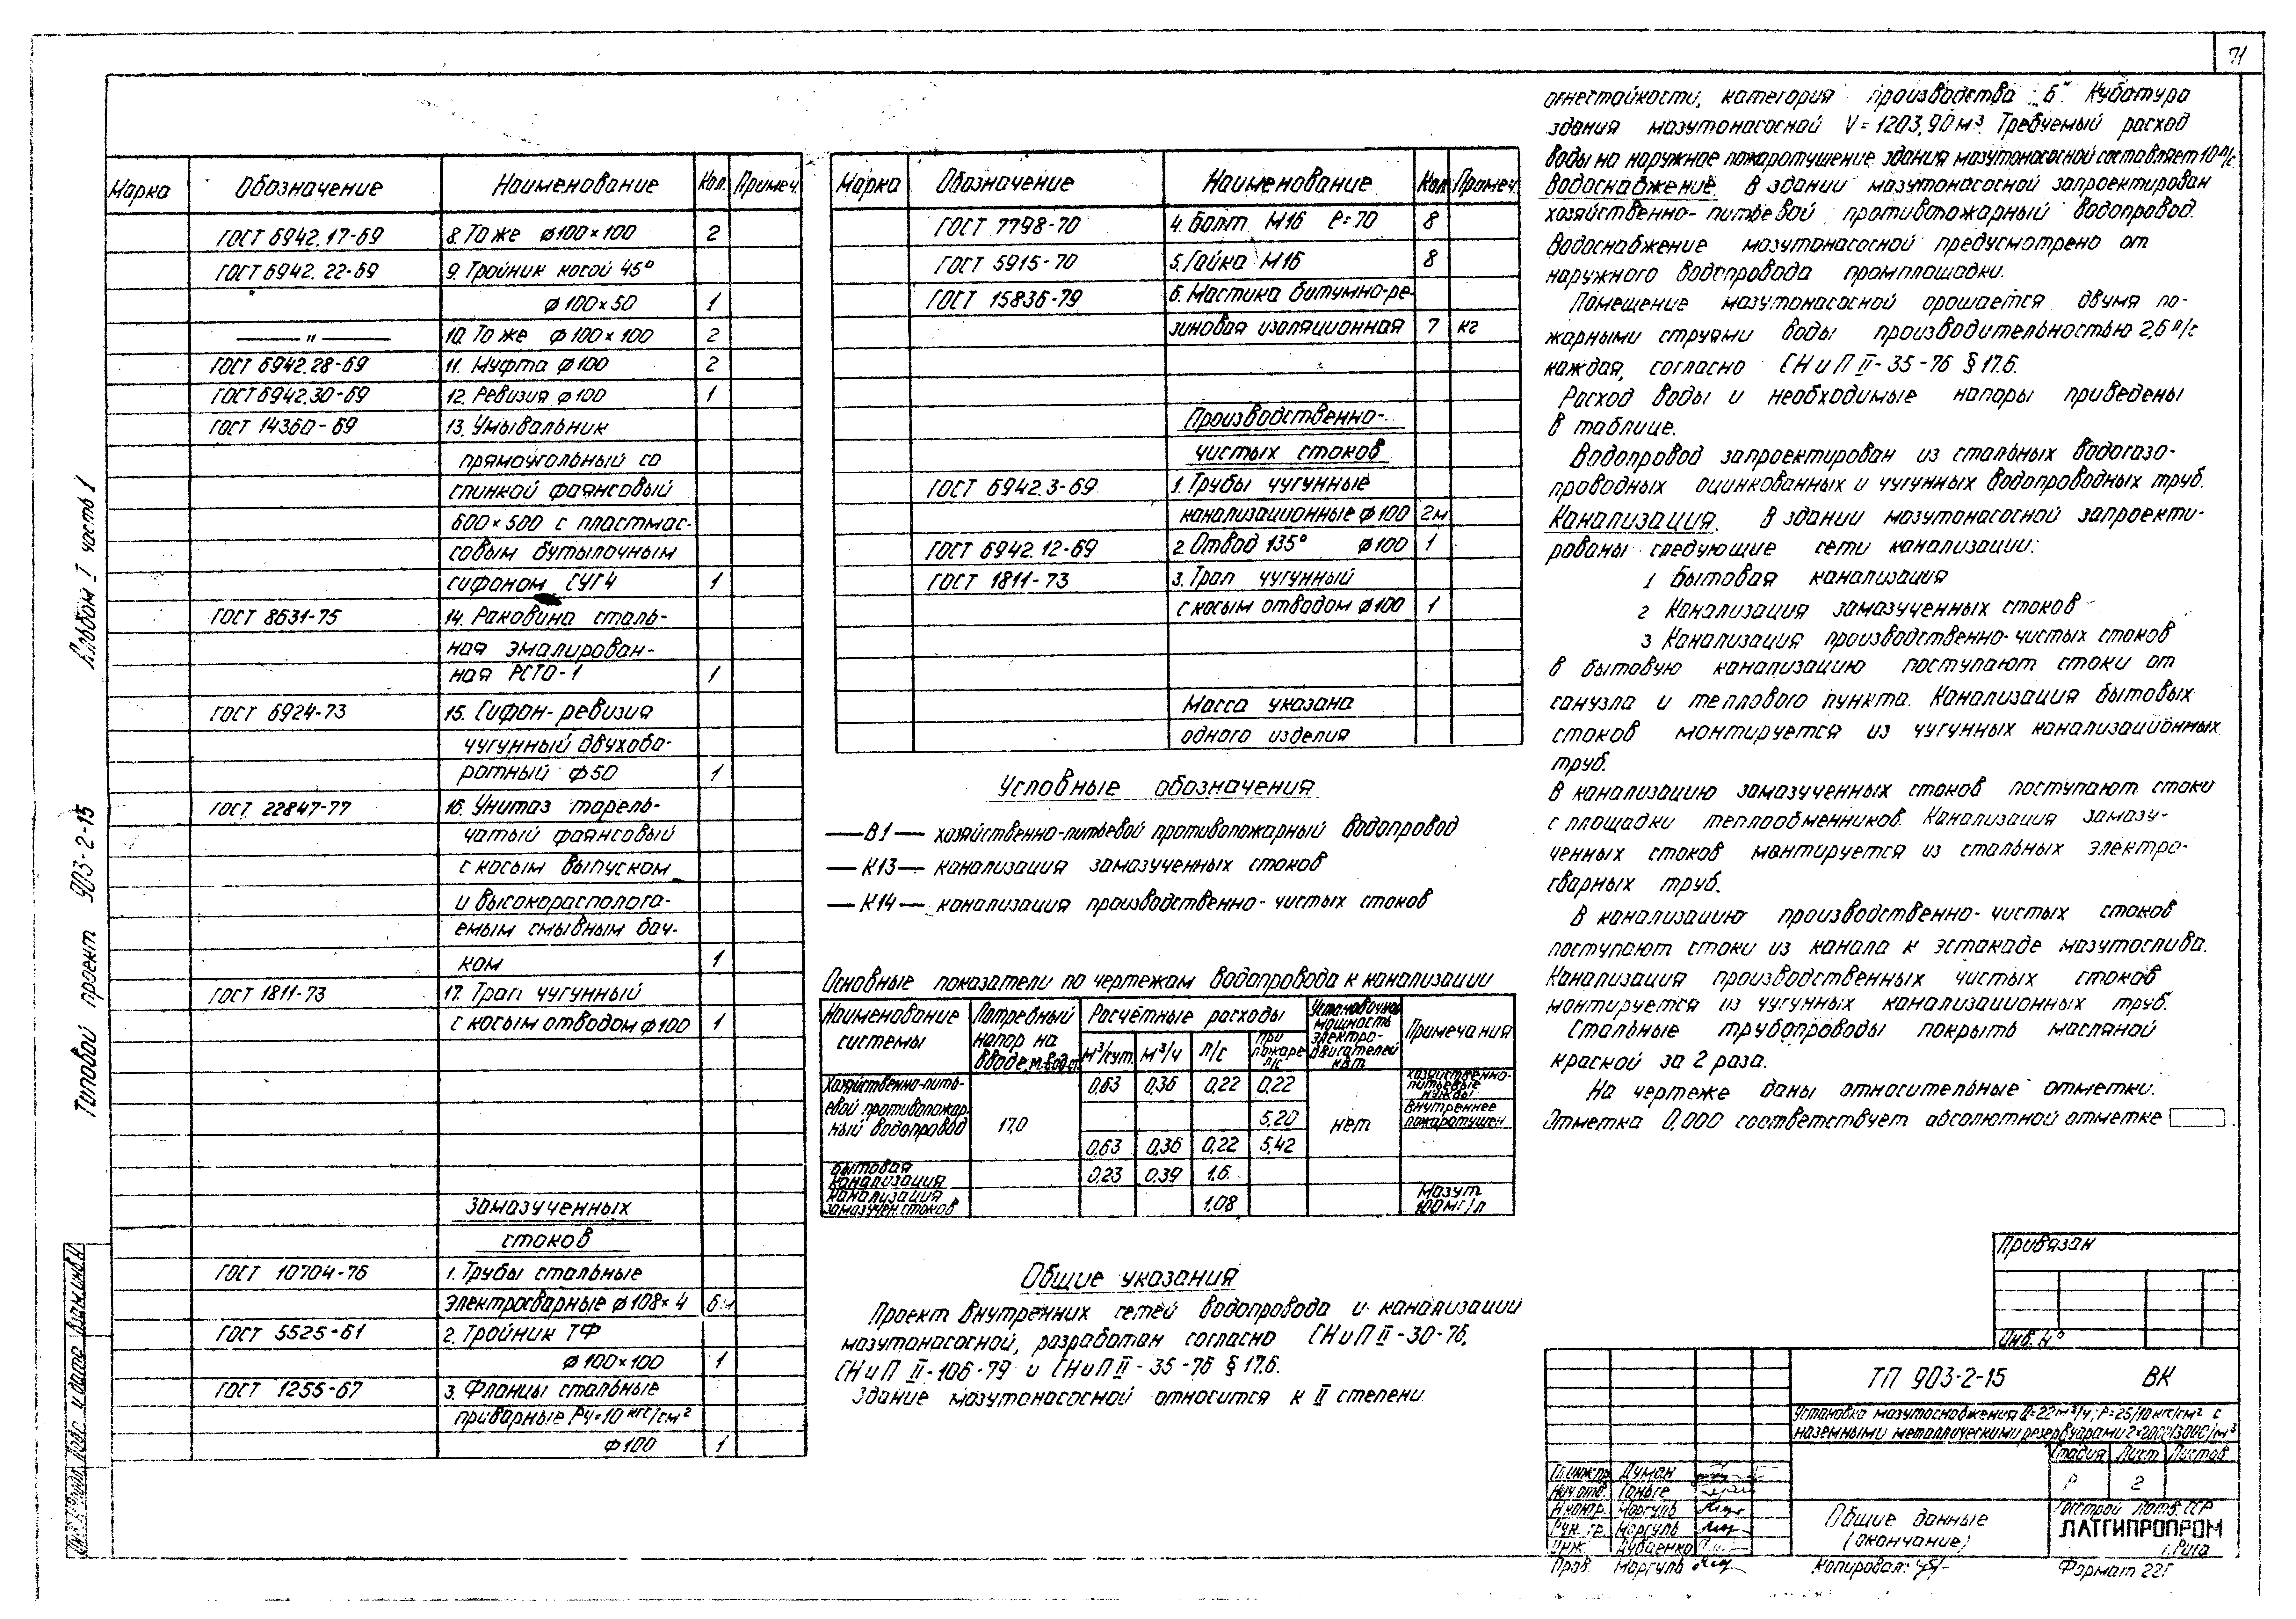 71
Альбом I часть 1
Типовой проект 903-2-15
Марка Обозначение Наименование Кол. Примеч.
ГОСТ 6942.17-69 8. То же ф100×100 2
ГОСТ 6942.22-69 9. Тройник косой 45°
ф100×50 1
— " — 10. То же ф100×100 2
ГОСТ 6942.28-69 11. Муфта ф100 2
ГОСТ 6942.30-69 12. Ревизия ф100 1
ГОСТ 14360-69 13. Умывальник
прямоугольный со
спинкой фаянсовый
600×500 с пластмас-
совым бутылочным
сифоном СУГ4 1
ГОСТ 8631-75 14. Раковина сталь-
ная эмалирован-
ная РСТО-1 1
ГОСТ 6924-73 15. Сифон-ревизия
чугунный двухобо-
ротный ф50 1
ГОСТ 22847-77 16. Унитаз тарель-
чатый фаянсовый
с косым выпуском
и высокорасполога-
емым смывным бач-
ком 1
ГОСТ 1811-73 17. Трап чугунный
с косым отводом ф100 1
Замазученных
стоков
ГОСТ 10704-76 1. Трубы стальные
электросварные ф108×4 6м
ГОСТ 5525-61 2. Тройник ТФ
ф100×100 1
ГОСТ 1255-67 3. Фланцы стальные
приварные Ру=10 кгс/см²
ф100 1
Марка Обозначение Наименование Кол. Примеч.
ГОСТ 7798-70 4. Болт М16 ℓ=70 8
ГОСТ 5915-70 5. Гайка М16 8
ГОСТ 15836-79 6. Мастика битумно-ре-
зиновая изоляционная 7 кг
Производственно-
чистых стоков
ГОСТ 6942.3-69 1. Трубы чугунные
канализационные ф100 2м
ГОСТ 6942.12-69 2. Отвод 135° ф100 1
ГОСТ 1811-73 3. Трап чугунный
с косым отводом ф100 1
Масса указана
одного изделия
Условные обозначения
—В1— хозяйственно-питьевой противопожарный водопровод
—К13— канализация замазученных стоков
—К14— канализация производственно-чистых стоков
Основные показатели по чертежам водопровода и канализации
Наименование системы Потребный напор на вводе, м.вод.ст. Расчётные расходы Установочная мощность электро-двигателей квт Примечания
м³/сут м³/ч л/с при пожаре л/с
Хозяйственно-пить- 0,63 0,36 0,22 0,22 хозяйственно-питьевые нужды
евой противопожар- 17,0 5,20 нет Внутреннее пожаротушен
ный водопровод 0,63 0,36 0,22 5,42
Бытовая канализация 0,23 0,39 1,6
Канализация замазучен.стоков 1,08 Мазут 100мг/л
Общие указания
Проект внутренних сетей водопровода и канализации
мазутонасосной, разработан согласно СНиП II-30-76,
СНиП II-106-79 и СНиП II-35-76 § 17.6.
Здание мазутонасосной относится к II степени
огнестойкости, категория производства „Б". Кубатура
здания мазутонасосной V=1203,90м³. Требуемый расход
воды на наружное пожаротушение здания мазутонасосной составляет 10 л/с.
Водоснабжение. В здании мазутонасосной запроектирован
хозяйственно-питьевой, противопожарный водопровод.
Водоснабжение мазутонасосной предусмотрено от
наружного водопровода промплощадки.
Помещение мазутонасосной орошается двумя по-
жарными струями воды производительностью 2,6 л/с
каждая, согласно СНиП II-35-76 § 17.6.
Расход воды и необходимые напоры приведены
в таблице.
Водопровод запроектирован из стальных водогазо-
проводных оцинкованных и чугунных водопроводных труб.
Канализация. В здании мазутонасосной запроекти-
рованы следующие сети канализации:
1 Бытовая канализация
2 Канализация замазученных стоков
3 Канализация производственно-чистых стоков
В бытовую канализацию поступают стоки от
санузла и теплового пункта. Канализация бытовых
стоков монтируется из чугунных канализационных
труб.
В канализацию замазученных стоков поступают стоки
с площадки теплообменников. Канализация замазу-
ченных стоков монтируется из стальных электро-
сварных труб.
В канализацию производственно-чистых стоков
поступают стоки из канала к эстакаде мазутослива.
Канализация производственных чистых стоков
монтируется из чугунных канализационных труб.
Стальные трубопроводы покрыть масляной
краской за 2 раза.
На чертеже даны относительные отметки.
Отметка 0,000 соответствует абсолютной отметке
Привязан
Инв. №
ТП 903-2-15 ВК
Установка мазутоснабжения Q=22м³/ч; Р=25/10 кгс/см² с
наземными металлическими резервуарами
Стадия Лист Листов
Р 2
Гл.инж.пр. Думан
Нач.отд.
Н.контр. Моргуль
Рук. гр. Моргуль
Инж. Дубаенко
Пров. Моргуль
Общие данные
(окончание)
Госстрой Латв.ССР
ЛАТГИПРОПРОМ
г.Рига
Копировал:
Формат 22Г
Инв.№ подл. Подп. и дата Взам.инв.№